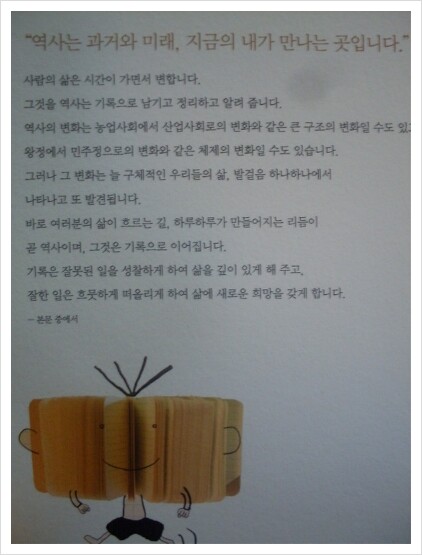 “역사는 과거와 미래, 지금의 내가 만나는 곳입니다.”
사람의 삶은 시간이 가면서 변합니다.
그것을 역사는 기록으로 남기고 정리하고 알려 줍니다.
역사의 변화는 농업사회에서 산업사회로의 변화와 같은 큰 구조의 변화일 수도 있고
왕정에서 민주정으로의 변화와 같은 체제의 변화일 수도 있습니다.
그러나 그 변화는 늘 구체적인 우리들의 삶, 발걸음 하나하나에서
나타나고 또 발견됩니다.
바로 여러분의 삶이 흐르는 길, 하루하루가 만들어지는 리듬이
곧 역사이며, 그것은 기록으로 이어집니다.
기록은 잘못된 일을 성찰하게 하여 삶을 깊이 있게 해 주고,
잘한 일은 흐뭇하게 떠올리게 하여 삶에 새로운 희망을 갖게 합니다.
– 본문 중에서